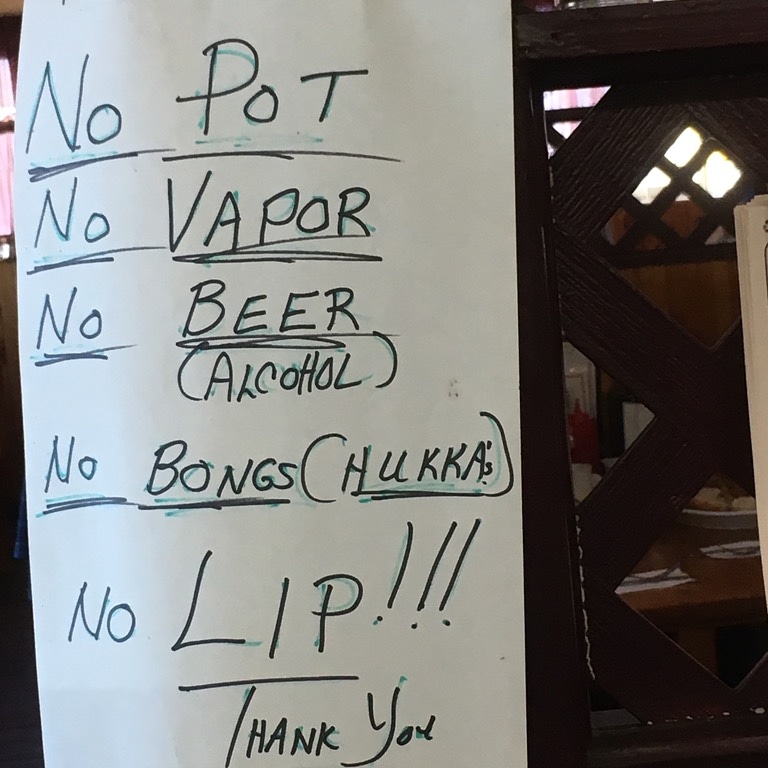 No POT
No VAPOR
No BEER
(ALCOHOL)
No BONGS (HUKKA's)
No LIP!!!
THANK You